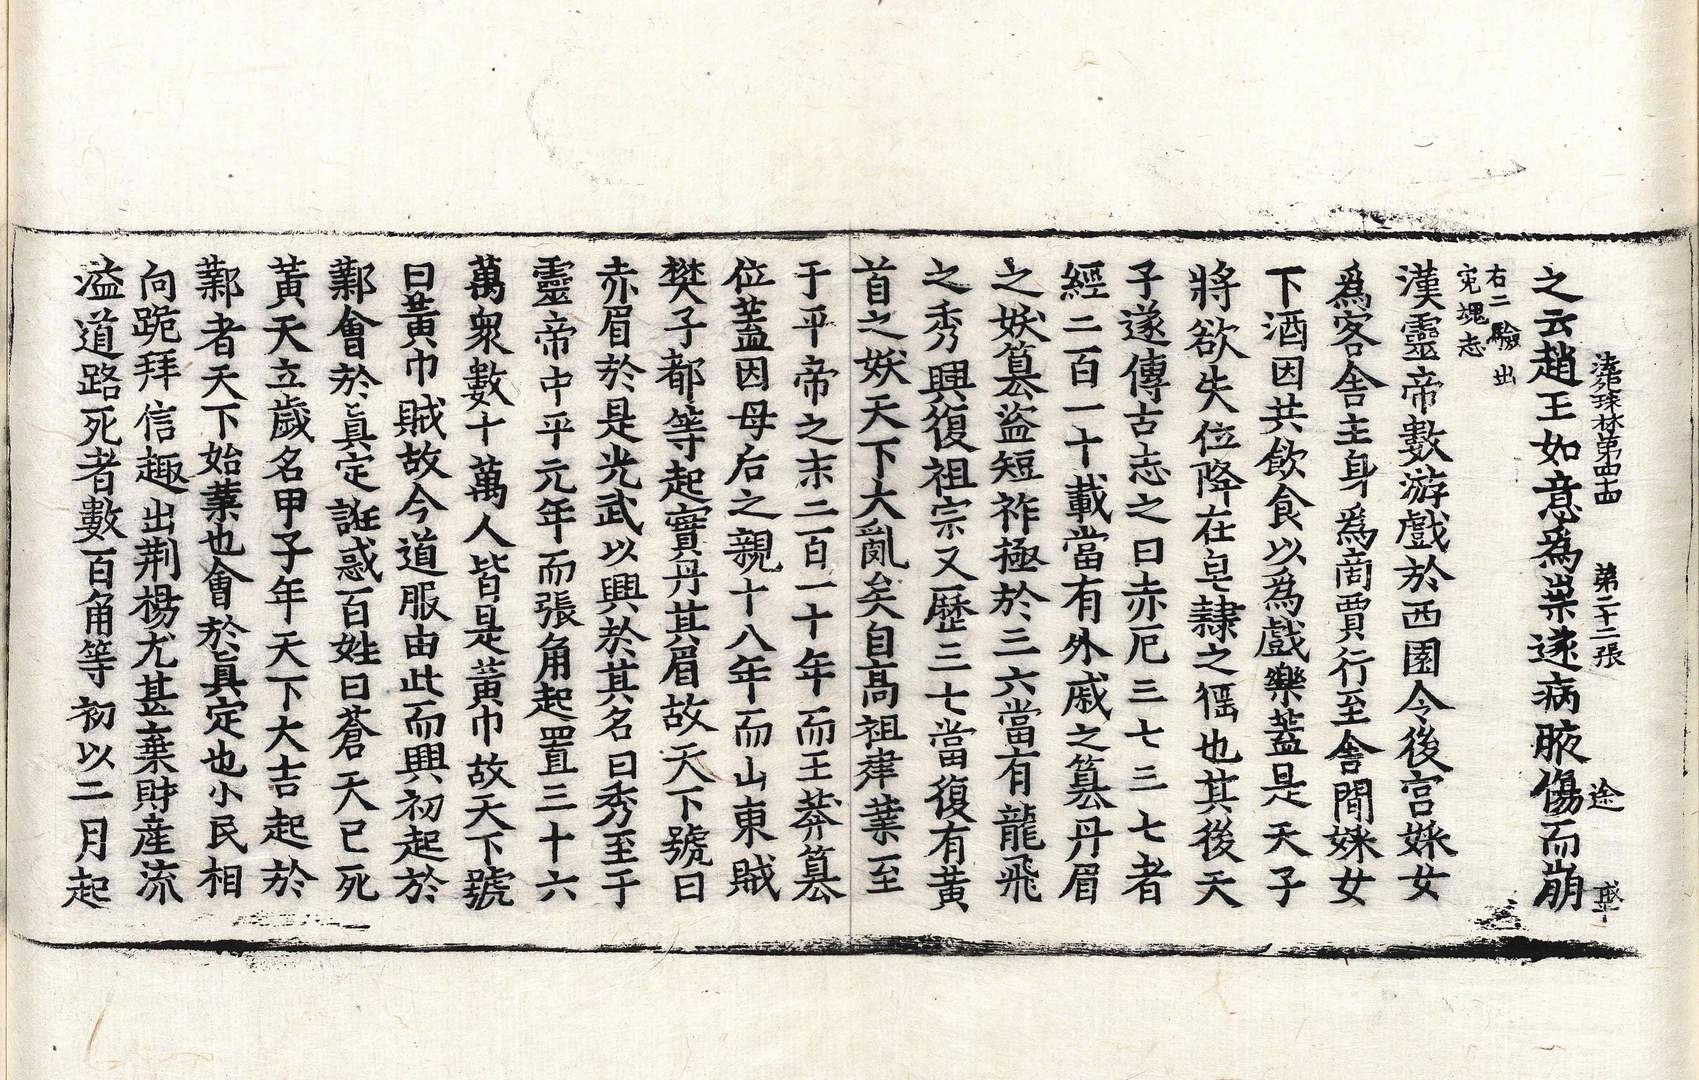 法苑珠林第四十四 第二十二張 途
之云趙王如意為祟遂病腋傷而崩
右二驗出
宛魂志
漢靈帝數游戲於西園令後宮婇女
爲客舍主身爲商賈行至舍間婇女
下酒因共飲食以爲戲樂蓋是天子
將欲失位降在皂隷之徭也其後天
子遂傳古志之曰赤厄三七三七者
經二百一十載當有外戚之篡丹眉
之妖篡盜短祚極於三六當有龍飛
之秀興復祖宗又歷三七當復有黄
首之妖天下大亂矣自高祖建業至
于平帝之末二百一十年而王莽篡
位蓋因母后之親十八年而山東賊
樊子都等起實丹其眉故天下號曰
赤眉於是光武以興於其名曰秀至于
靈帝中平元年而張角起置三十六
萬衆數十萬人皆是黃巾故天下號
曰黃巾賊故今道服由此而興初起於
鄴會於眞定誑惑百姓曰蒼天已死
黃天立歲名甲子年天下大吉起於
鄴者天下始業也會於眞定也小民相
向跪拜信趣出荆楊尤甚棄財產流
溢道路死者數百角等初以二月起